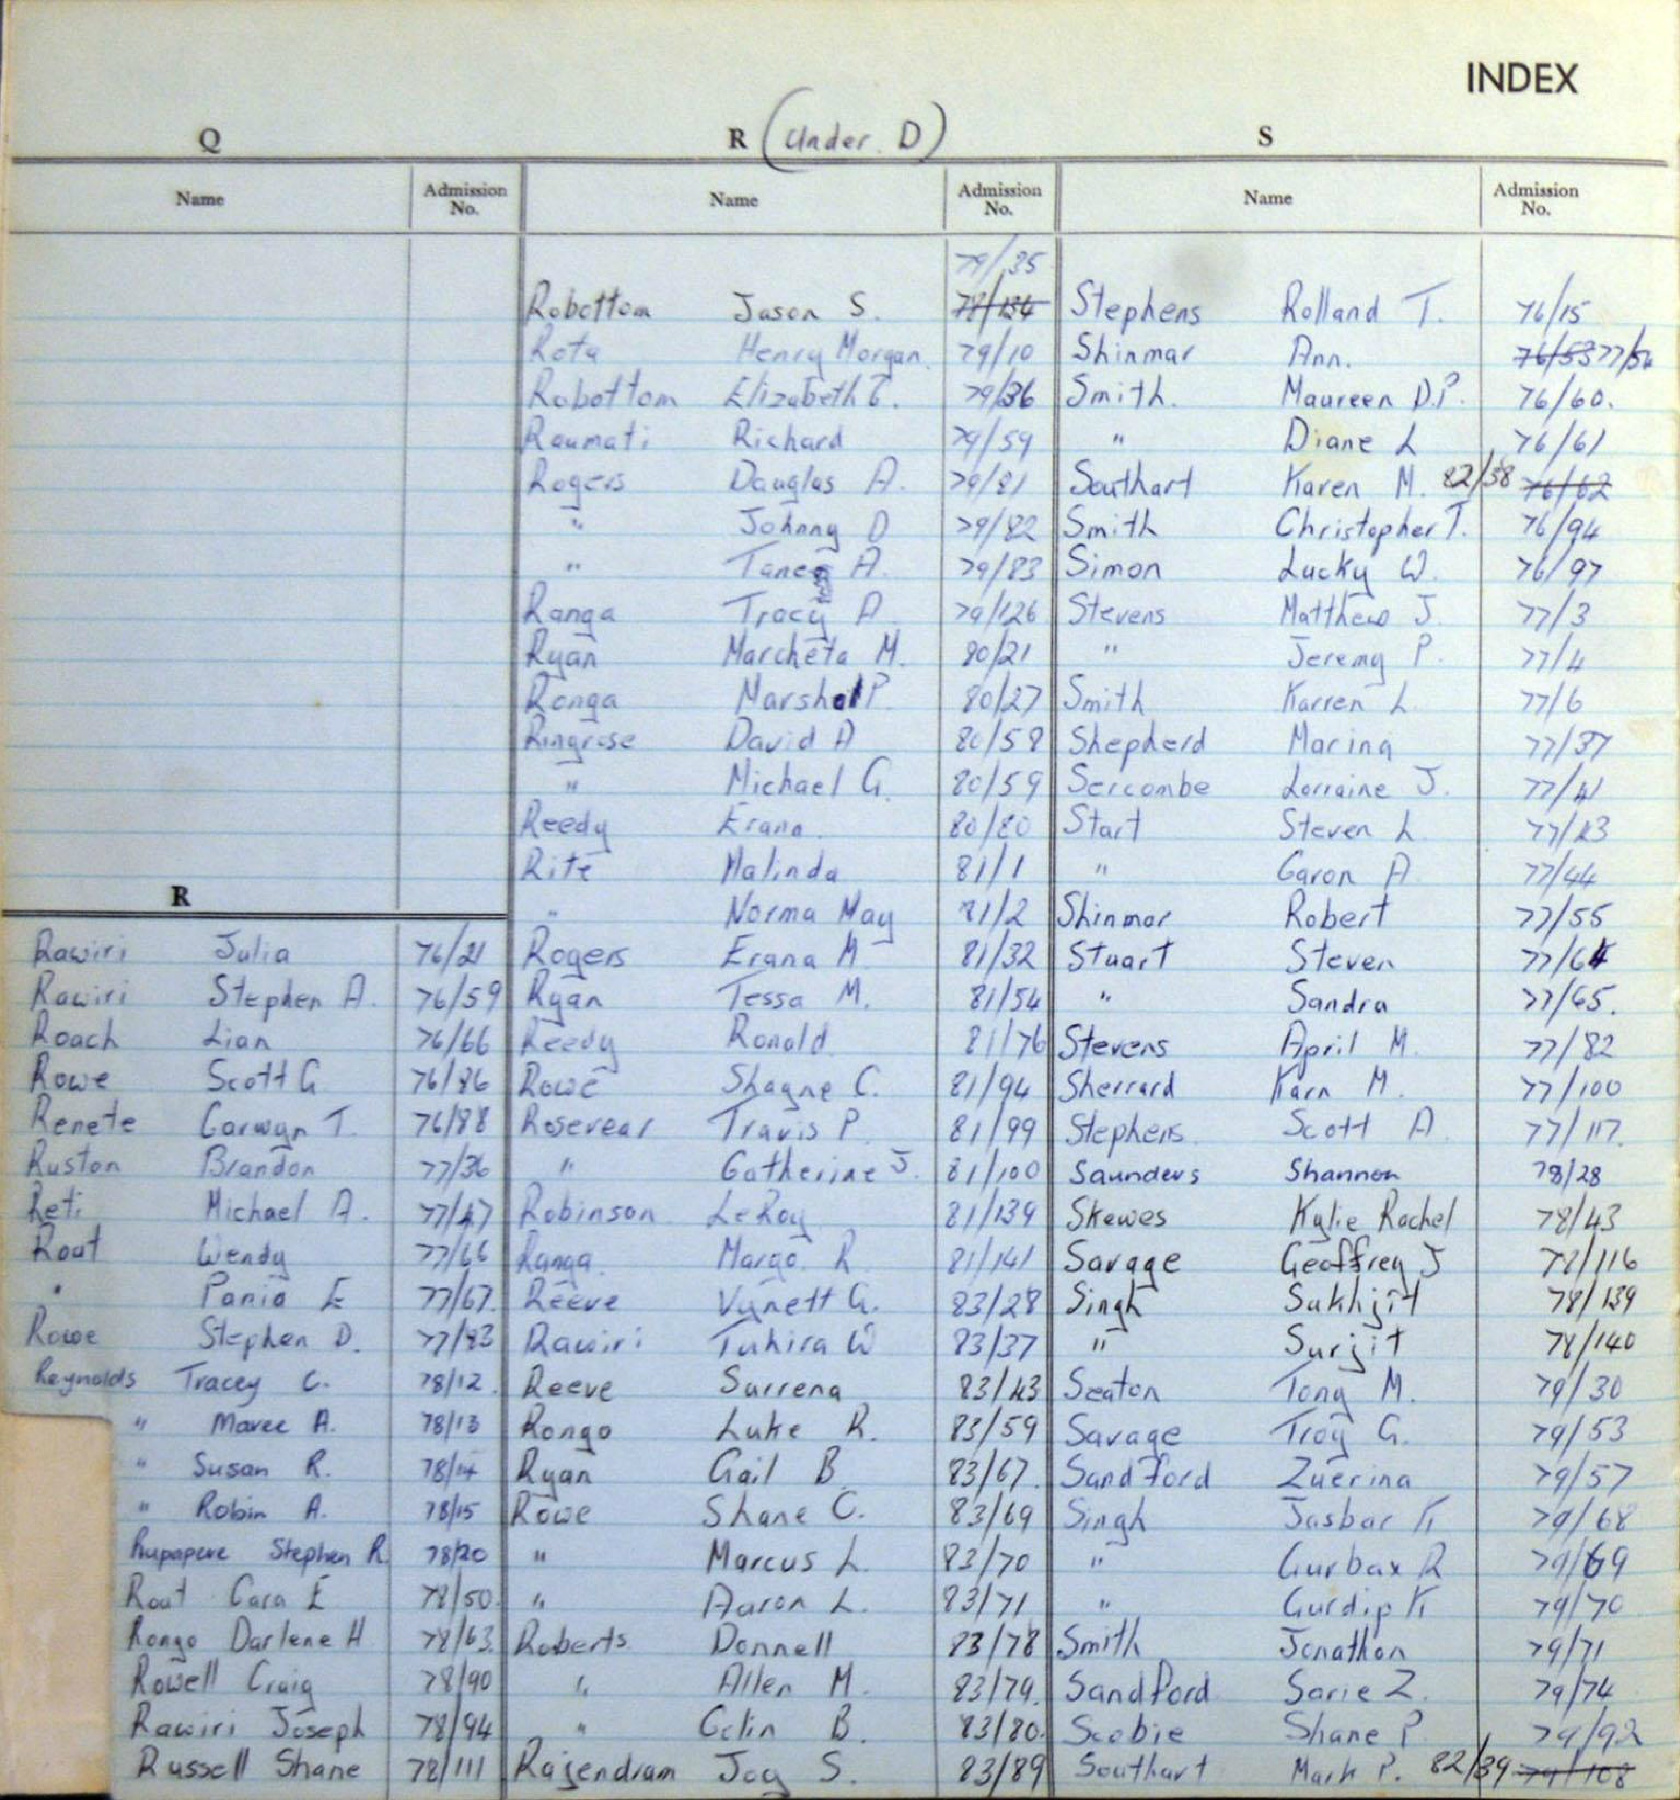 INDEX
Q
Name Admission No.
R
Rawiri Julia 76/21
Rawiri Stephen A. 76/59
Roach Lian 76/66
Rowe Scott G 76/86
Renete Garwyn T. 76/88
Ruston Brandon 77/36
Reti Michael A. 77/47
Rout Wendy 77/66
" Pania E 77/67.
Rowe Stephen D. 77/93
Reynolds Tracey C. 78/12
" Maree A. 78/13
" Susan R. 78/14
" Robin A. 78/15
Rupapere Stephen R 78/20
Rout Cara E 78/50
Rongo Darlene H 78/63
Rowell Craig 78/90
Rawiri Joseph 78/94
Russell Shane 78/111
R (Under D)
Name Admission No.
79/35
Robottom Jason S. 78/134
Rota Henry Morgan 79/10
Robottom Elizabeth T. 79/36
Raumati Richard 79/59
Rogers Douglas A. 79/81
" Johnny D 79/82
" A. 79/83
Ranga Tracy A 79/126
Ryan Marcheta M. 80/21
Ronga Marshal P. 80/27
Ringrose David A 80/58
" Michael G. 80/59
Reedy Erana. 80/80
Rite Malinda 81/1
" Norma May 81/2
Rogers Erana M 81/32
Ryan Tessa M. 81/54
Reedy Ronald 81/76
Rowe Shayne C. 81/94
Rosevear Travis P. 81/99
" Catherine J. 81/100
Robinson LeRoy 81/139
Ranga. Margo R 81/141
Reeve Vynett G. 83/28
Rawiri Tuhira W 83/37
Reeve Surrena 83/43
Rongo Luke R. 83/59
Ryan Gail B 83/67.
Rowe Shane C. 83/69
" Marcus L. 83/70
" Aaron L. 83/71
Roberts Donnell 83/78
" Allen M. 83/79.
" Colin B. 83/80.
Rajendram Joy S. 83/89
S
Name Admission No.
Stephens Rolland T. 76/15
Shinmar Ann. 76/53 77/54
Smith. Maureen D.P. 76/60.
" Diane L 76/61
Southart Karen M. 82/38 76/62
Smith Christopher T. 76/94
Simon Lucky W. 76/97
Stevens Matthew J. 77/3
" Jeremy P. 77/4
Smith Karren L 77/6
Shepherd Marina 77/37
Sercombe Lorraine J. 77/41
Start Steven L. 77/43
" Garon A 77/44
Shinmar Robert 77/55
Stuart Steven 77/64
" Sandra 77/65.
Stevens April M. 77/82
Sherrard Karn M. 77/100
Stephens Scott A 77/117.
Saunders Shannon 78/28
Skewes Kylie Rachel 78/43
Savage Geoffrey J 78/116
Singh Sukhjit 78/139
" Surjit 78/140
Seaton Tony M. 79/30
Savage Troy G. 79/53
Sandford Zuerina 79/57
Singh Jasbar K 79/68
" Gurbax R 79/69
" Gurdip K 79/70
Smith Jonathon 79/71
Sandford Sarie Z. 79/74
Scobie Shane P 79/92
Southart Mark P. 82/39 79/108